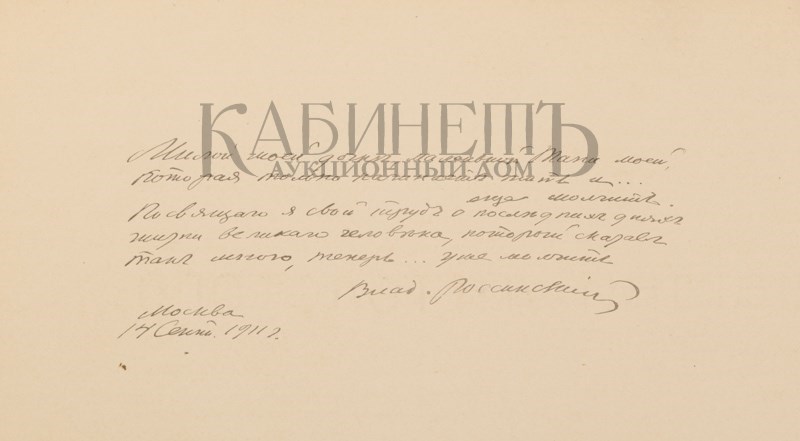 КАБИНЕТЪ
АУКЦИОННЫЙ ДОМ
Милой моей дочке маленькой Тани моей,
которая только начинаетъ жить и...
еще молчитъ.
Посвящаю я свой трудъ о последнихъ дняхъ
жизни великаго человѣка, который сказалъ
такъ много, теперь... уже молчитъ
Влад. Россинскій
Москва
14 Сент. 1911 г.